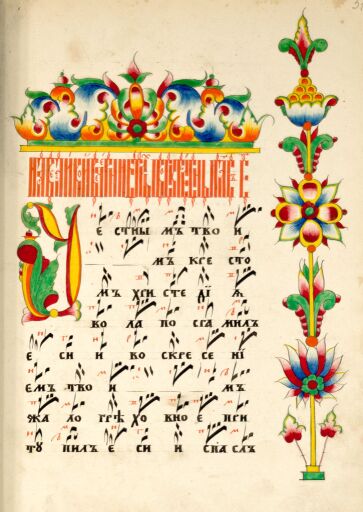 Че стны мъ тво и
мъ кре сто
мъ хри сте дї ѧ
во ла по сра милъ
е си и во скре се нї
емъ тво и мъ
жа ло грѣ хо вно е при
тꙋ пилъ е си и спа слъ